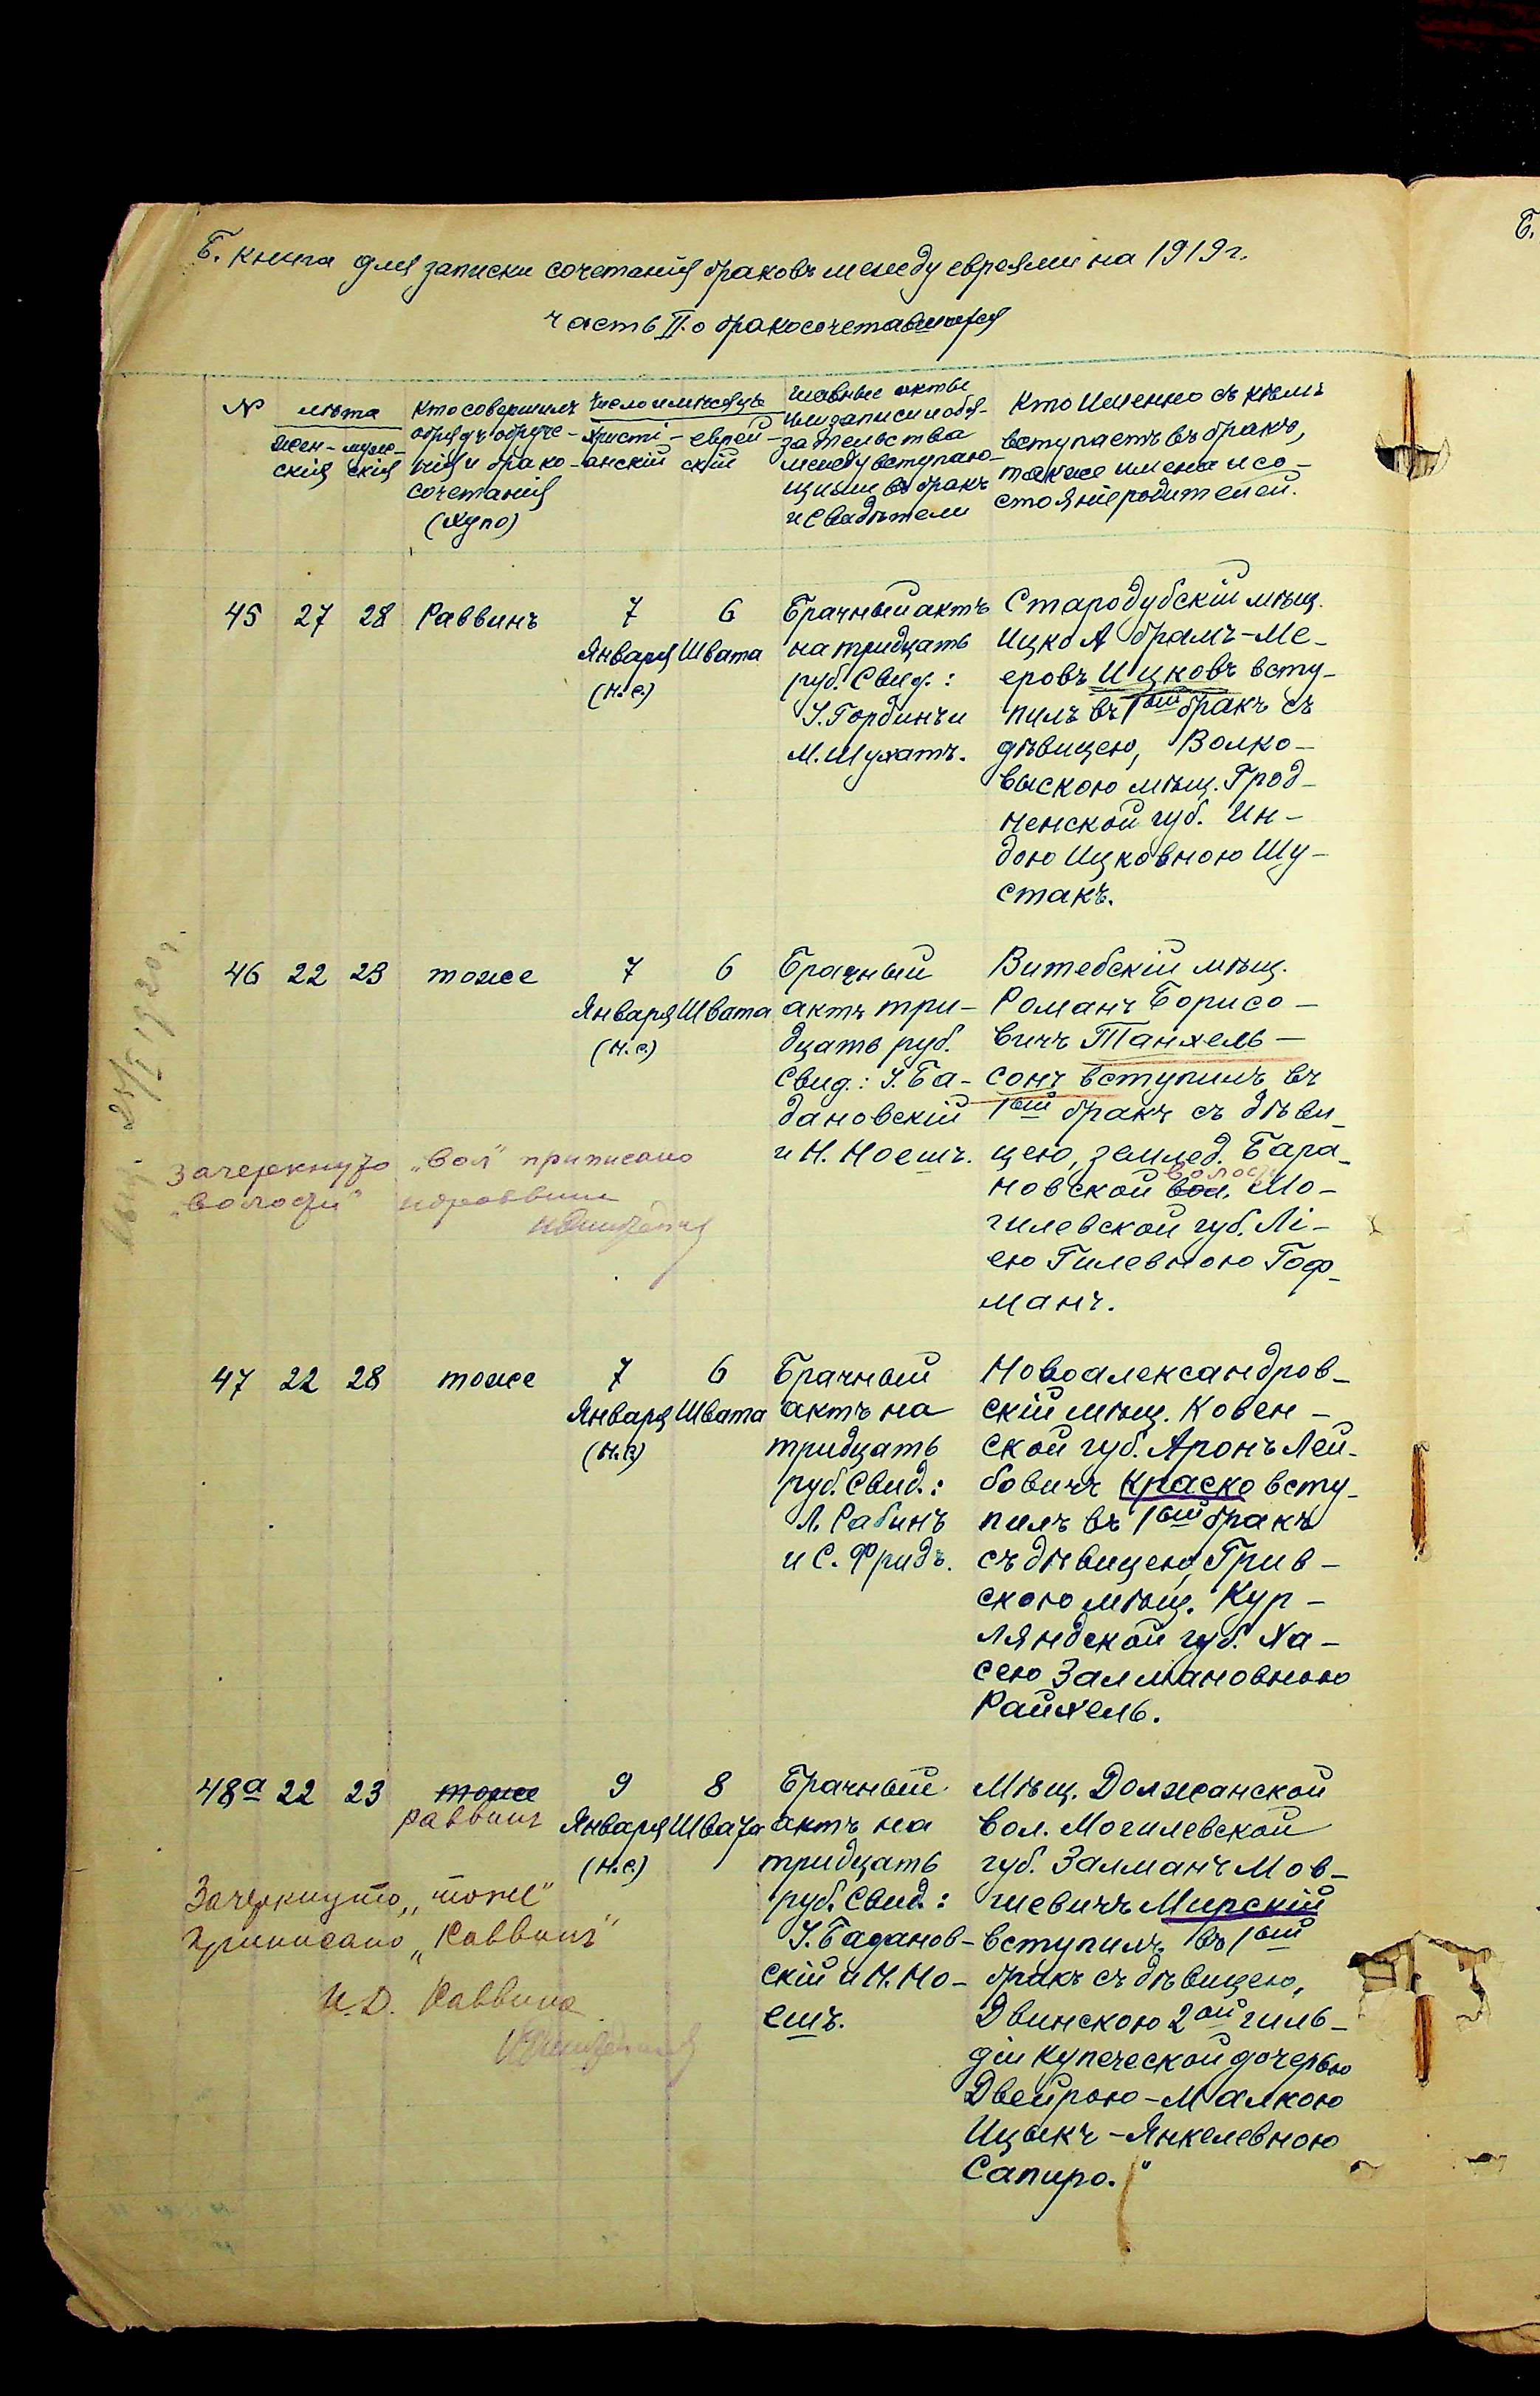 Б. книга для записки сочетанiя браковъ между евреями на 1919 г.
часть II. о бракосочетавшихся
№
лѣта
жен-
скiя
муж-
скiя
Кто совершилъ
обрядъ обруче-
нiя и брако-
сочетанiя
(хупо)
Число и мѣсяцъ
христi-
анскiй
еврей-
скiй
Главные акты
или записи и обя-
зательства
между вступаю-
щими въ бракъ
и свидѣтели
Кто именно съ кѣмъ
вступаетъ въ бракъ,
также имена и со-
стоянiе родителей.
45 27 28 Раввинъ
7
Января
(н.с.)
6
Швата
Брачный актъ
на тридцать
руб. Свид.:
I. Гордингъ и
М. Шухатъ.
Стародубскiй мѣщ.
Ицко Абрамъ-Ме-
еровъ Ицковъ всту-
пилъ въ 1ый бракъ съ
дѣвицею, Волко-
выскою мѣщ. Грод-
ненской губ. Ин-
дою Ицковною Шу-
стакъ.
46 22 23 тоже
7
Января
(н.с.)
6
Швата
Брачный
актъ три-
дцать руб.
Свид.: I. Ба-
дановскiй
и Н. Ноешъ.
Витебскiй мѣщ.
Романъ Борисо-
вичъ Танхель-
сонъ вступилъ въ
1ый бракъ съ дѣви-
цею, землед. Бара-
волости
новской вол. Мо-
гилевской губ. Лi-
ею Гилевною Гоф-
манъ.
Зачеркнуто „вол“ приписано
„волости“
25/I 1920 г.
47 22 28 тоже
7
Января
(н.с.)
6
Швата
Брачный
актъ на
тридцать
руб. Свид.:
Л. Рабинъ
и С. Фридъ.
Новоалександров-
скiй мѣщ. Ковен-
ской губ. Аронъ Лей-
бовичъ Краско всту-
пилъ въ 1ый бракъ
съ дѣвицею, Грив-
скою мѣщ. Кур-
ляндской губ. Ха-
сею Залмановною
Райхель.
48а 22 23 тоже
раввинъ
9
Января
(н.с.)
8
Швата
Брачный
актъ на
тридцать
руб. Свид.:
I. Баданов-
скiй и Н. Но-
ешъ.
Мѣщ. Должанской
вол. Могилевской
губ. Залманъ Мов-
шевичъ Мирскiй
вступилъ въ 1ый
бракъ съ дѣвицею,
Двинскою 2ой гиль-
дiи купеческой дочерью
Двейрою-Малкою
Ицыкъ-Янкелевною
Сапиро.
Зачеркнуто „тоже“
Приписано „Раввинъ“
И.д. Раввина
Б.